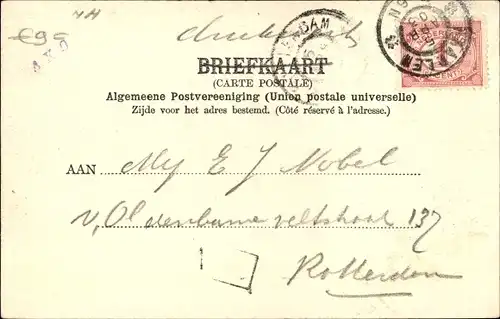 €9a
BRIEFKAART
(CARTE POSTALE)
Algemeene Postvereeniging (Union postale universelle)
Zijde voor het adres bestemd. (Côté réservé à l'adresse.)
AAN Mej E J Nobel
v, Oldenbarneveltstraat 137
Rotterdam